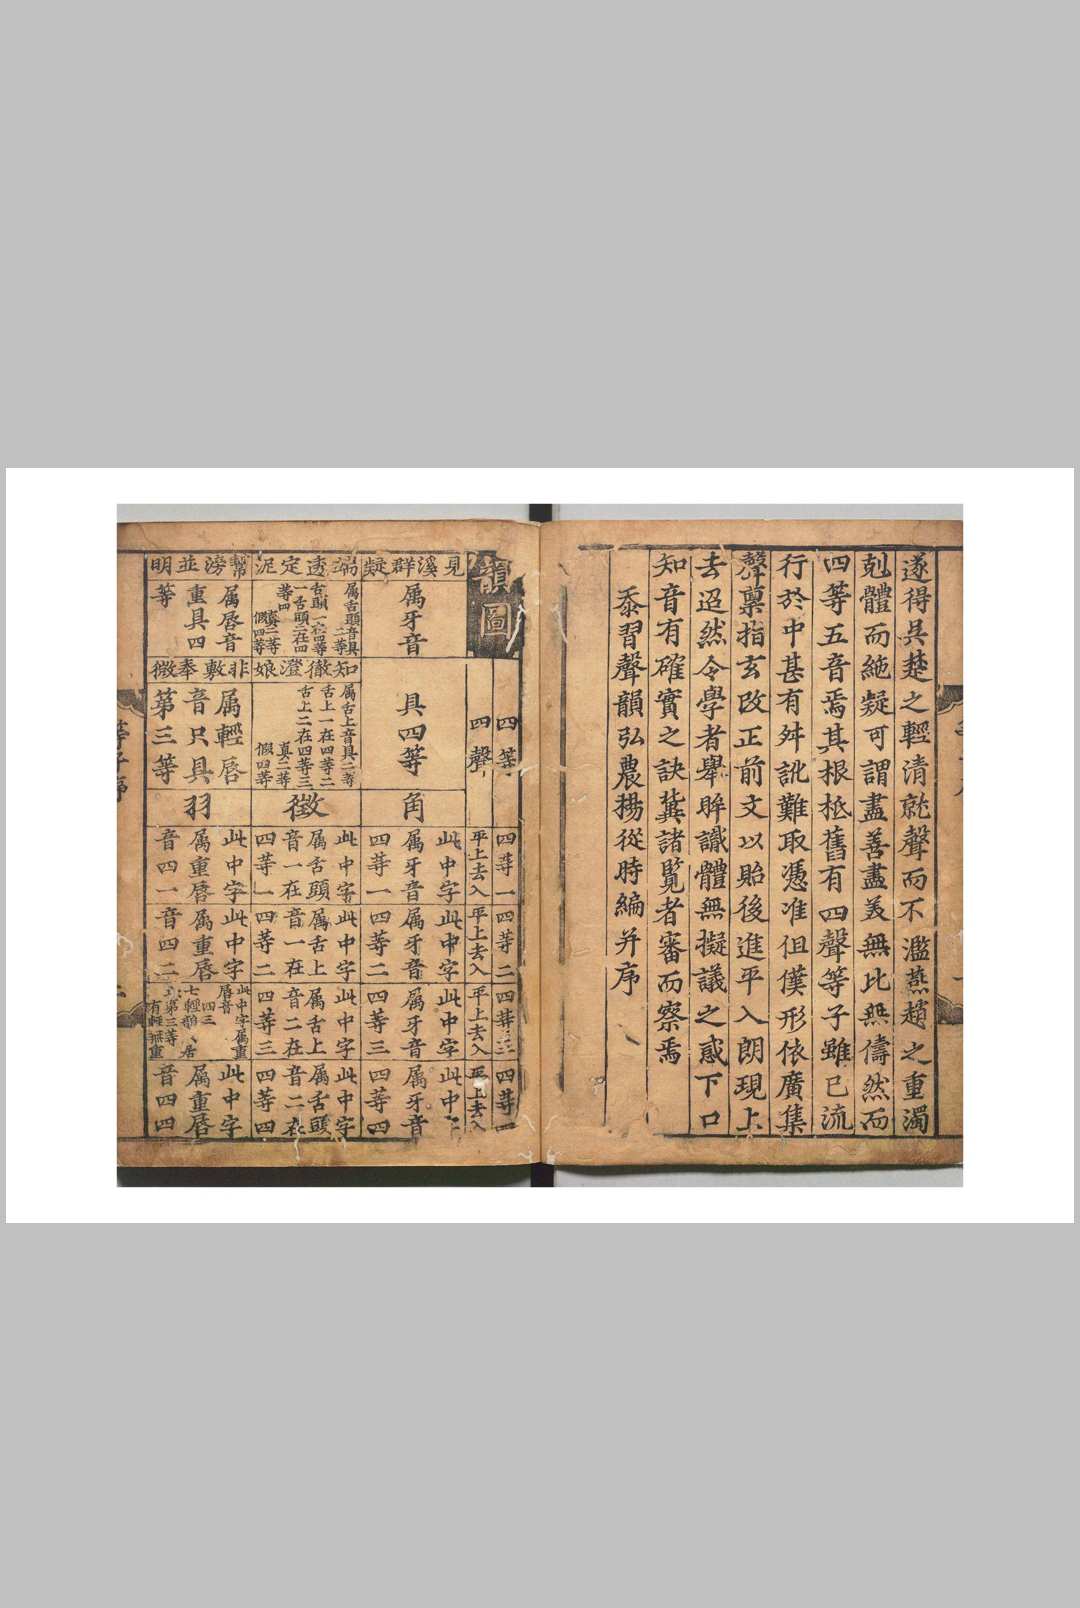 遂得吳楚之輕清就聲而不濫燕趙之重濁
剋體而絕疑可謂盡善盡美無比無儔然而
四等五音焉其根柢舊有四聲等子雖已流
行於中甚有舛訛難取憑准但僕形依廣集
聲稟指玄改正前文以貽後進平入朗現上
去迢然令學者舉眸識體無擬議之惑下口
知音有確實之訣冀諸覽者審而察焉
忝習聲韻弘農楊從時編并序
韻圖
四等
四聲
四等一
四等二
四等三
四等
平上去入
平上去入
平上去入
平上去入
見溪群疑
屬牙音
具四等
角
此中字屬牙音四等一
此中字屬牙音四等二
此中字屬牙音四等三
此中字屬牙音四等四
端透定泥
屬舌頭音具二等
舌頭一在四等一
舌頭二在四等四
真二等
假四等
知徹澄娘
屬舌上音具二等
舌上一在四等二
舌上二在四等三
真二等
假四等
徵
此中字屬舌頭音一在四等一
此中字屬舌上音一在四等二
此中字屬舌上音二在四等三
此中字屬舌頭音二在四等四
幫滂並明
屬唇音重具四等
非敷奉微
屬輕唇音只具第三等
羽
此中字屬重唇音四一
此中字屬重唇音四二
此中字屬重唇音四三
居第三等
有輕無重
此中字屬重唇音四四